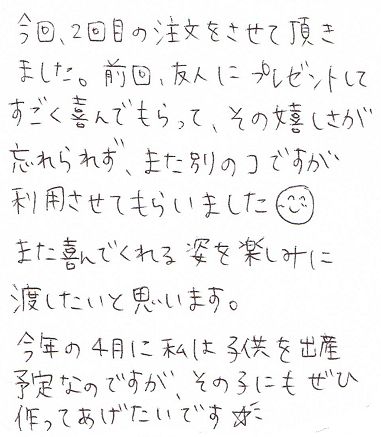 今回、2回目の注文をさせて頂き
ました。前回、友人にプレゼントして
すごく喜んでもらって、その嬉しさが
忘れられず、また別のコですが
利用させてもらいました
また喜んでくれる姿を楽しみに
渡したいと思います。
今年の4月に私は子供を出産
予定なのですが、その子にもぜひ
作ってあげたいです☆